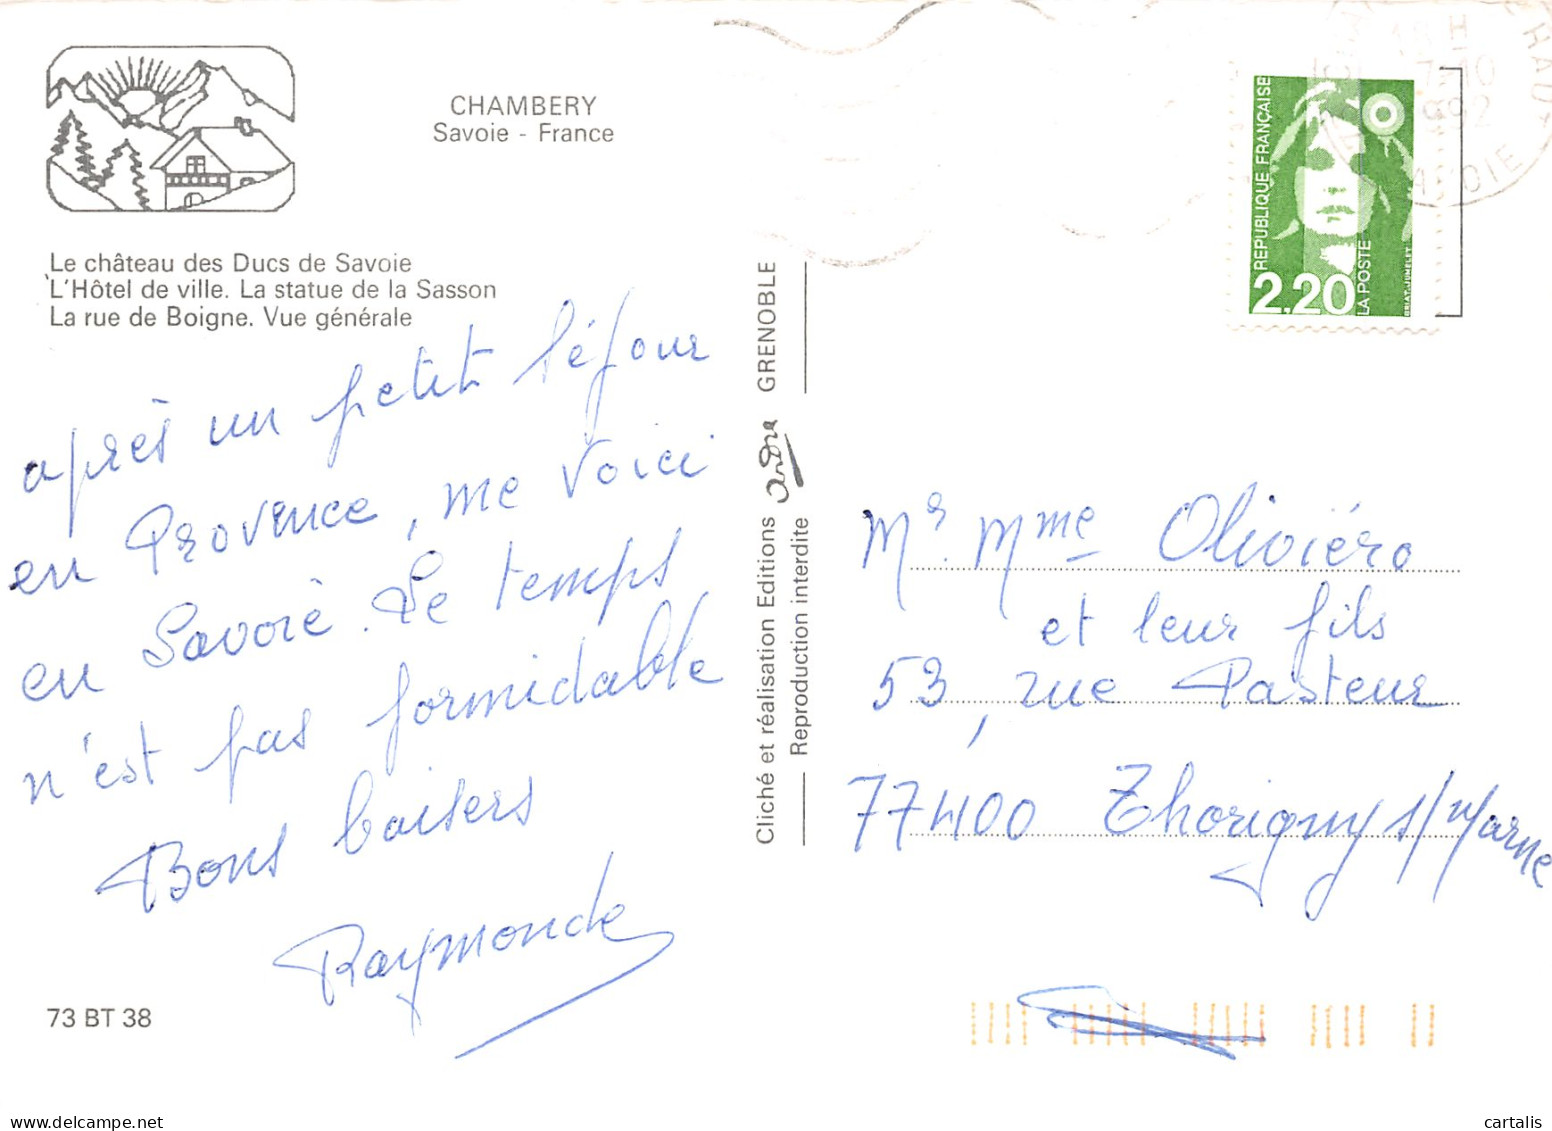 CHAMBERY
Savoie - France
Le château des Ducs de Savoie
L'Hôtel de ville. La statue de la Sasson
La rue de Boigne. Vue générale
après un petit séjour
en Provence, me voici
en Savoie. Le temps
n'est pas formidable
Bons baisers
Raymonde
73 BT 38
Cliché et réalisation Editions andré GRENOBLE
Reproduction interdite
REPUBLIQUE FRANÇAISE
2,20
LA POSTE
BRIAT-JUMELET
18 H
7-10
Mr. Mme Oliviéro
et leur fils
53, rue Pasteur
77400 Thorigny s/Marne
cartalis